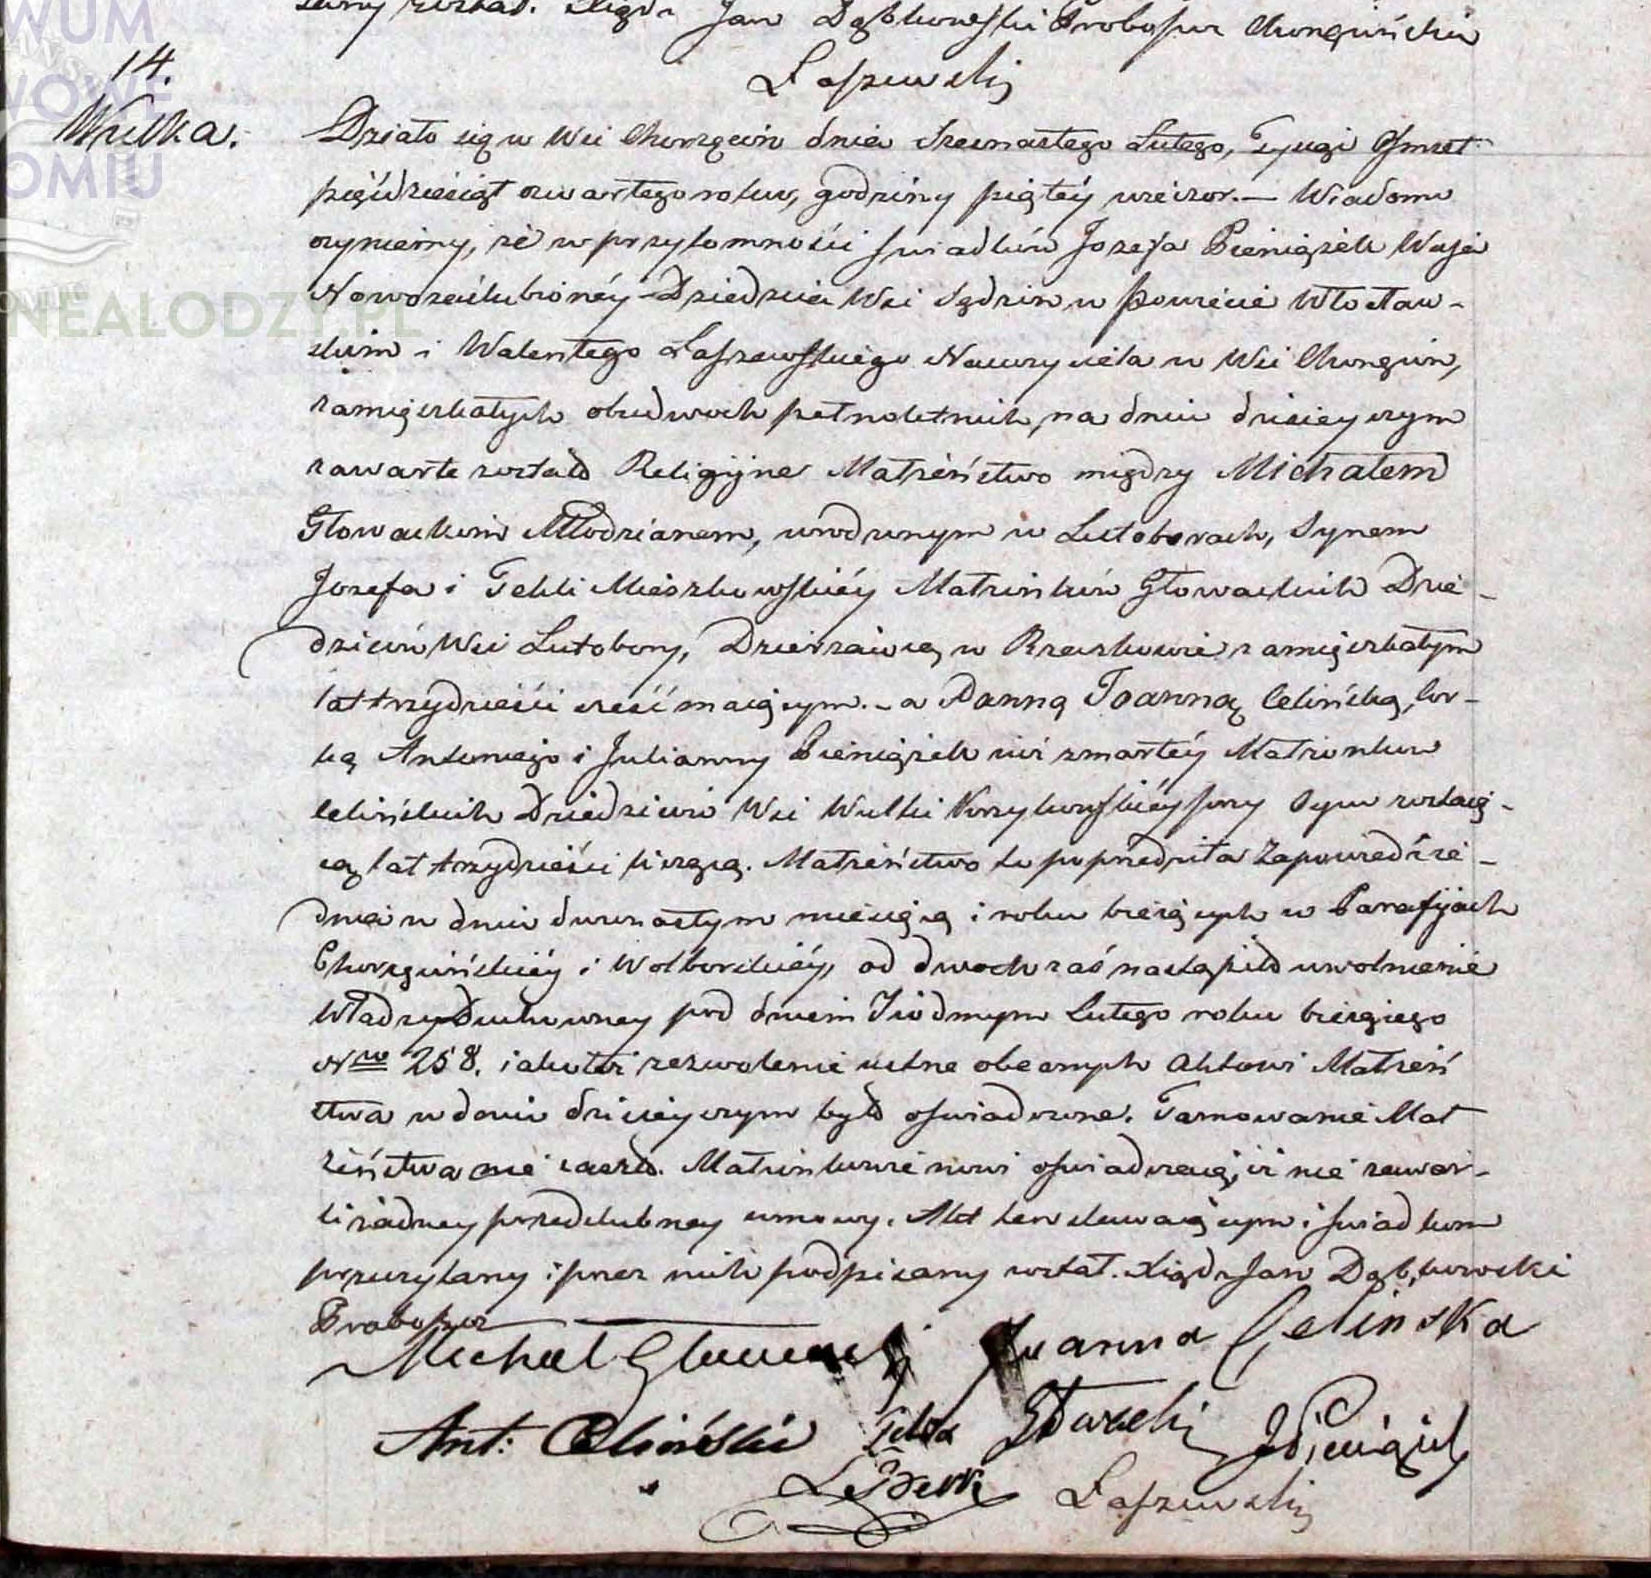 Jan Dąbkowski Proboszcz Chorzęciński
Łaszewski
14.
Wulka.
Działo się w Wsi Chorzęcin dnia Szesnastego Lutego, Tysiąc Osmset
pięćdziesiąt czwartego roku, godziny piątéy wieczor. — Wiadomo
czyniemy, że w przytomności swiadków Jozefa Pieniążek Wuja
Nowozaślubionéy Dziedzica Wsi Sędzin w Powiecie Włocław-
skim i Walentego Łaszewskiego Nauczyciela w Wsi Chorzęcin,
zamięszkałych obudwoch pełnoletnich, na dniu dzisieyszym
zawarte zostało Religijne Małżeństwo między Michałem
Głowackim Młodzianem, urodzonym w Lutoborach, Synem
Jozefa i Tekli Mieszkowskiéy Małżonków Głowackich Dzie-
dziców Wsi Lutobory, Dzierżawcą w zamięszkałym
lat trzydzieści sześć maiącym. – a Panną Joanną Celińską, Cor-
ką Antoniego i Julianny Pieniążek już zmarłéy Małżonków
Celińskich Dziedziców Wsi Wulki Krzykowskiéy przy Oycu zostaią-
cą lat trzydzieści liczącą. Małżeństwo to poprzedziła Zapowiedź ie-
dna w dniu dwunastym miesiąca i roku bieżących w Parafijach
Chorzęcińskiéy i Wolborskiéy, od dwoch zaś nastąpiło uwolnienie
Władzy Duchowney pod dniem Siódmym Lutego roku bieżącego
Nro 258. iako też zezwolenie ustne obecnych Aktowi Małżeń
stwa w dniu dzisieyszym było oswiadczone. Tamowanie Mał
żeństwa nie zaszło. Małżonkowie nowi oswiadczaią, iż nie zawar-
li żadney przedślubney umowy. Akt ten stawaiącym i swiadkom
przeczytany i przez nich podpisany został. Xiądz Jan Dąbkowski
Proboszcz
Michał Głowacki Joanna Celinska
Ant: Celiński Tekla Głowacki J Pieniążek
Łaszewski